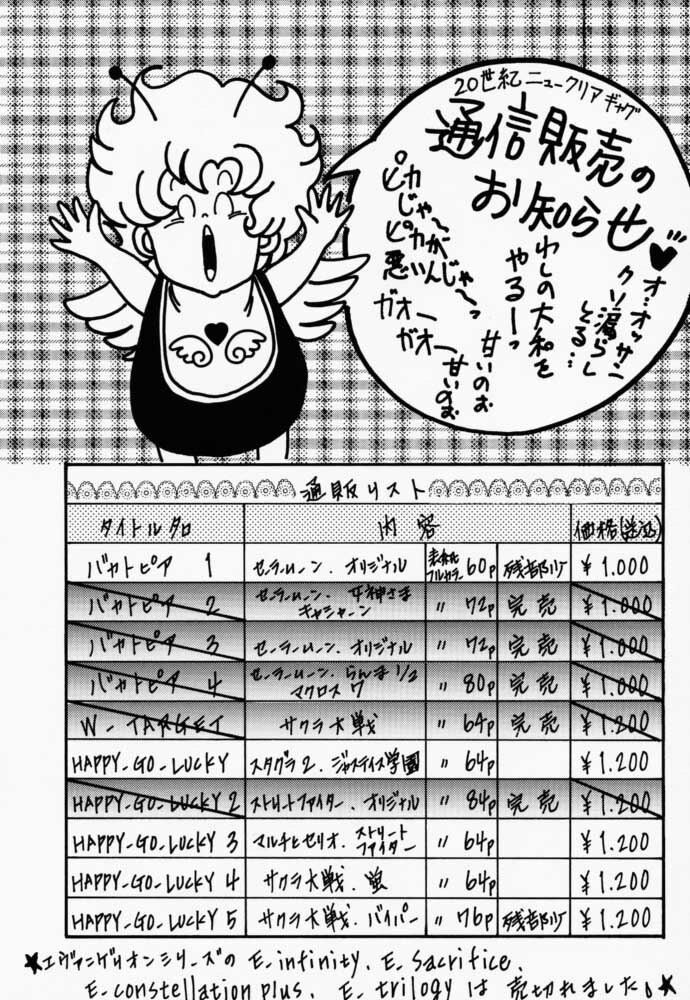 20世紀ニュークリアギャグ
通信販売の
お知らせ♥
オ…オッサン
クソ漏らし
とる…
わしの大和を
やるーっ
ピカじゃ〜
ピカが
悪いんじゃ〜っ
甘いのお
甘いのお
ガオー
ガオー
通販リスト
タイトル名 内容 価格(送込)
バカトピア 1 セーラームーン. オリジナル 表紙フルカラー 60p 残部少 ¥1.000
バカトピア 2 セーラームーン. 女神さま キャシャーン 〃 72p 完売 ¥1.000
バカトピア 3 セーラームーン. オリジナル 〃 72p 完売 ¥1.000
バカトピア 4 セーラームーン. らんま1/2 マクロス7 〃 80p 完売 ¥1.000
W-TARGET サクラ大戦 〃 64p 完売 ¥1.200
HAPPY-GO-LUCKY スタグラ2. ジャスティス学園 〃 64p ¥1.200
HAPPY-GO-LUCKY 2 ストリートファイター. オリジナル 〃 84p 完売 ¥1.200
HAPPY-GO-LUCKY 3 マルチとセリオ. ストリートファイター 〃 64p ¥1.200
HAPPY-GO-LUCKY 4 サクラ大戦. 蛍 〃 64p ¥1.200
HAPPY-GO-LUCKY 5 サクラ大戦. バイパー 〃 76p 残部少 ¥1.200
★エヴァンゲリオンシリーズの E-infinity. E-sacrifice.
E-constellation plus. E-trilogy は 売切れました。★